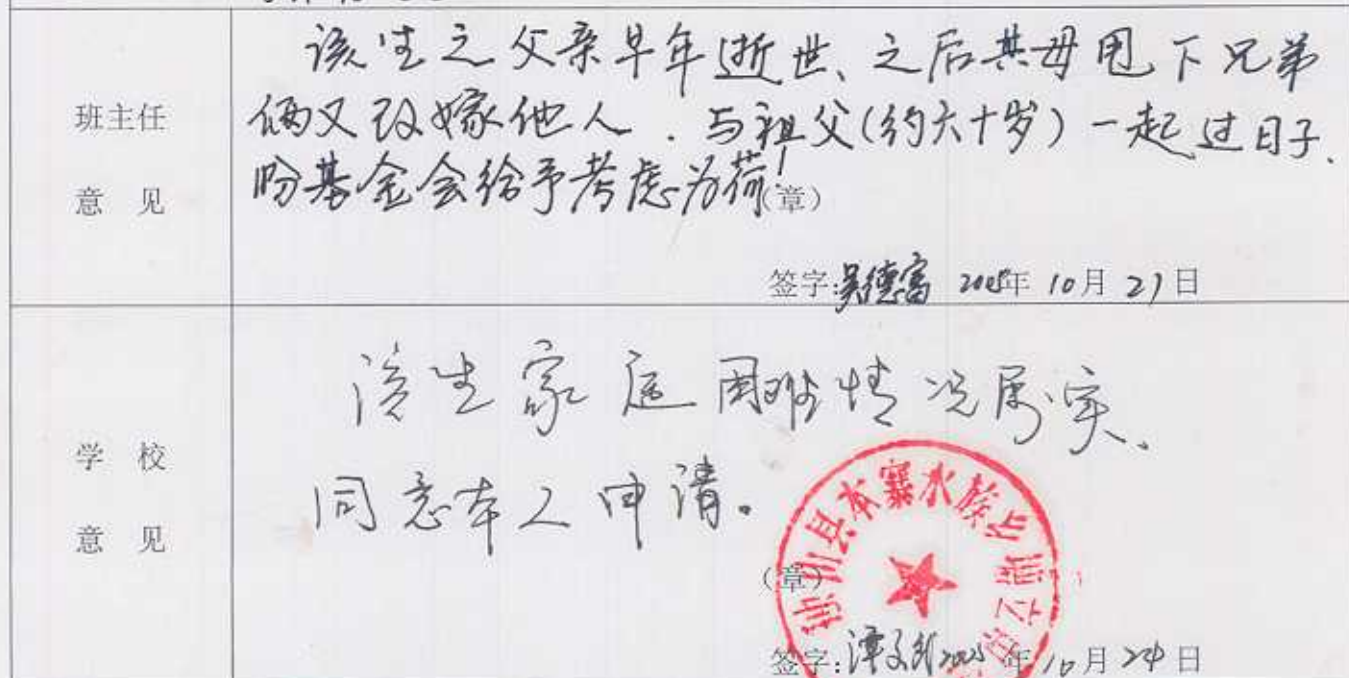 班主任
意 见
该生之父亲早年逝世、之后其母甩下兄弟
俩又改嫁他人.与祖父(约六十岁)一起过日子.
盼基金会给予考虑为荷!
(章)
签字:吴德富 2005年 10月 21日
学 校
意 见
该生家庭困难情况属实、
同意本人申请。
县本寨水族乡
(章)
签字:潭文 2005年 10月 24日